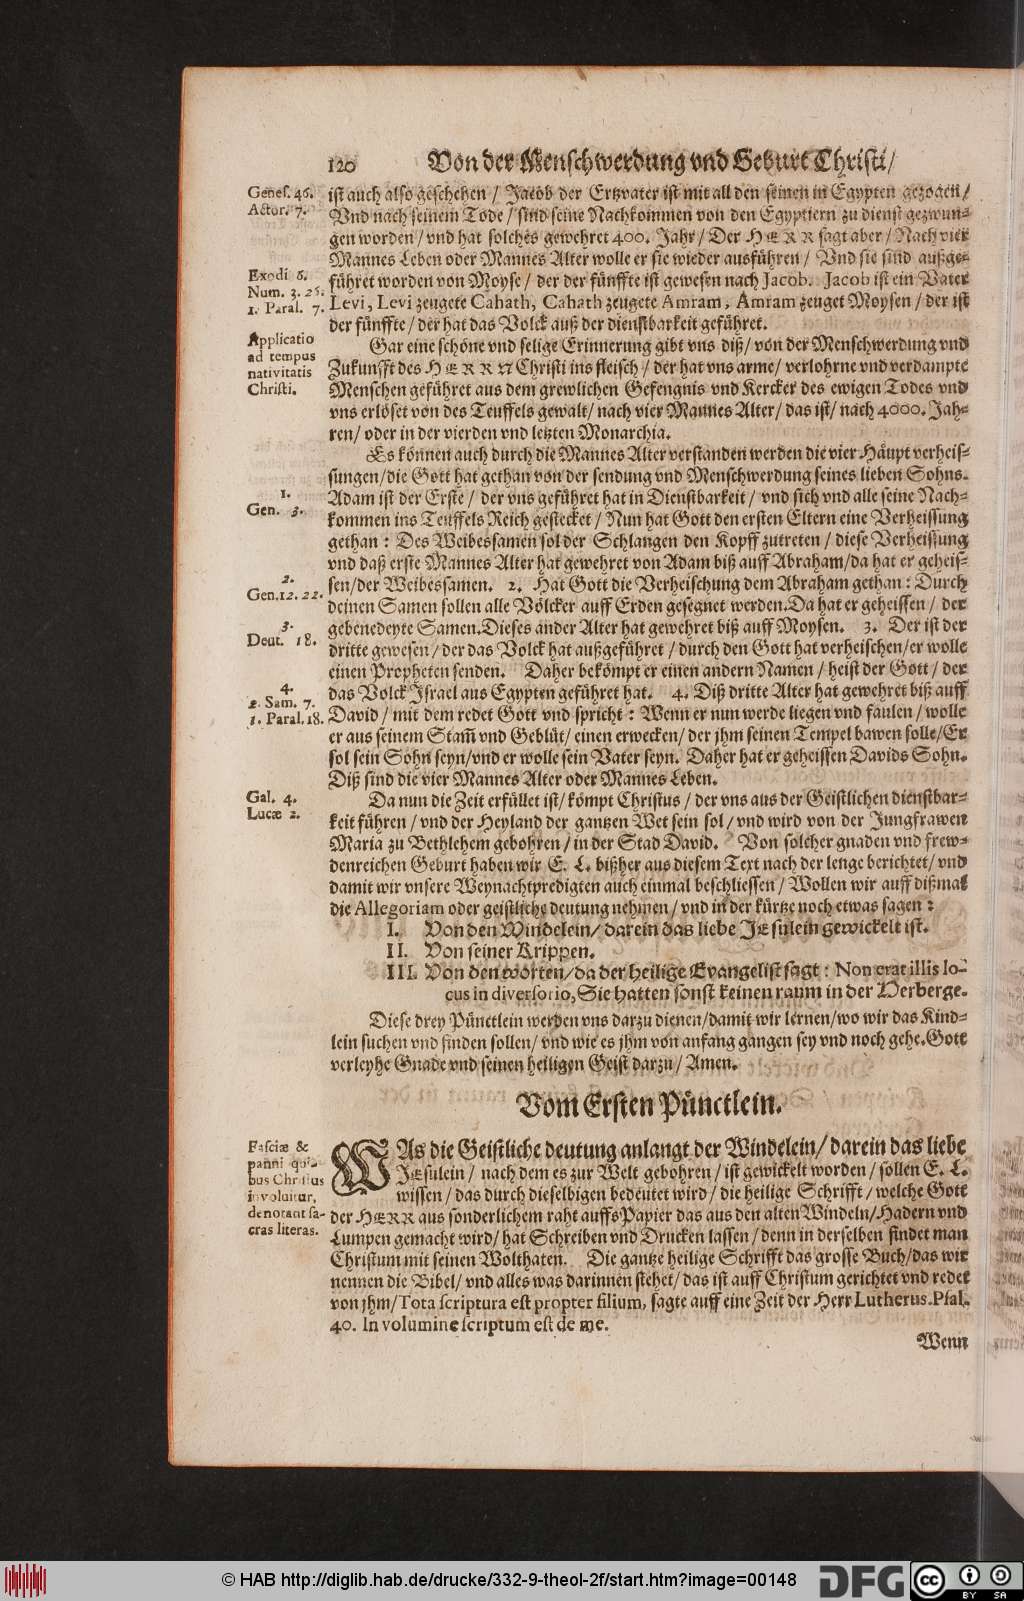 120 Von der Menschwerdung vnd Geburt Christi/
Genes. 46.
Actor. 7.
ist auch also geschehen / Jacob der Ertzvater ist mit all den seinen in Egypten gezogen /
Vnd nach seinem Tode / sind seine Nachkommen von den Egyptiern zu dienst gezwun-
gen worden / vnd hat solches gewehret 400. Jahr / Der HERR sagt aber / Nach vier
Mannes Leben oder Mannes Alter wolle er sie wieder ausführen / Vnd sie sind außge-
Exodi 6.
Num. 3. 26.
1. Paral. 7.
führet worden von Moyse / der der fünffte ist gewesen nach Jacob. Jacob ist ein Vater
Levi, Levi zeugete Cahath, Cahath zeugete Amram, Amram zeuget Moysen / der ist
der fünffte / der hat das Volck auß der dienstbarkeit geführet.
Applicatio
ad tempus
nativitatis
Christi.
Gar eine schöne vnd selige Erinnerung gibt vns diß / von der Menschwerdung vnd
Zukunfft des HERRN Christi ins fleisch / der hat vns arme / verlohrne vnd verdampte
Menschen geführet aus dem grewlichen Gefengnis vnd Kercker des ewigen Todes vnd
vns erlöset von des Teuffels gewalt / nach vier Mannes Alter / das ist / nach 4000. Jah-
ren / oder in der vierden vnd letzten Monarchia.
Es können auch durch die Mannes Alter verstanden werden die vier Häupt verheis-
sungen / die Gott hat gethan von der sendung vnd Menschwerdung seines lieben Sohns.
1.
Gen. 3.
Adam ist der Erste / der vns geführet hat in Dienstbarkeit / vnd sich vnd alle seine Nach-
kommen ins Teuffels Reich gestecket / Nun hat Gott den ersten Eltern eine Verheissung
gethan : Des Weibessamen sol der Schlangen den Kopff zutreten / diese Verheissung
vnd daß erste Mannes Alter hat gewehret von Adam biß auff Abraham / da hat er geheis-
2.
Gen. 12. 22.
sen / der Weibessamen. 2. Hat Gott die Verheischung dem Abraham gethan : Durch
deinen Samen sollen alle Völcker auff Erden gesegnet werden. Da hat er geheissen / der
3.
Deut. 18.
gebenedeyte Samen. Dieses ander Alter hat gewehret biß auff Moysen. 3. Der ist der
dritte gewesen / der das Volck hat außgeführet / durch den Gott hat verheischen / er wolle
einen Propheten senden. Daher bekömpt er einen andern Namen / heist der Gott / der
4.
2. Sam. 7.
1. Paral. 18.
das Volck Jsrael aus Egypten geführet hat. 4. Diß dritte Alter hat gewehret biß auff
David / mit dem redet Gott vnd spricht : Wenn er nun werde liegen vnd faulen / wolle
er aus seinem Stam̃ vnd Geblüt / einen erwecken / der jhm seinen Tempel bawen solle / Er
sol sein Sohn seyn / vnd er wolle sein Vater seyn. Daher hat er geheissen Davids Sohn.
Diß sind die vier Mannes Alter oder Mannes Leben.
Gal. 4.
Lucæ 2.
Da nun die Zeit erfüllet ist / kömpt Christus / der vns aus der Geistlichen dienstbar-
keit führen / vnd der Heyland der gantzen Wet sein sol / vnd wird von der Jungfrawen
Maria zu Bethlehem gebohren / in der Stad David. Von solcher gnaden vnd frew-
denreichen Geburt haben wir E. L. bißher aus diesem Text nach der lenge berichtet / vnd
damit wir vnsere Weynachtpredigten auch einmal beschliessen / Wollen wir auff dißmal
die Allegoriam oder geistliche deutung nehmen / vnd in der kürtze noch etwas sagen :
I. Von den Windelein / darein das liebe JEsulein gewickelt ist.
II. Von seiner Krippen.
III. Von den worten / da der heilige Evangelist sagt : Non erat illis lo-
cus in diversorio, Sie hatten sonst keinen raum in der Herberge.
Diese drey Pünctlein werden vns darzu dienen / damit wir lernen / wo wir das Kind-
lein suchen vnd finden sollen / vnd wie es jhm von anfang gangen sey vnd noch gehe. Gott
verleyhe Gnade vnd seinen heiligen Geist darzu / Amen.
Vom Ersten Pünctlein.
Fasciæ &
panni qui-
bus Christus
involuitur,
denotant sa-
cras literas.
WAs die Geistliche deutung anlangt der Windelein / darein das liebe
JEsulein / nach dem es zur Welt gebohren / ist gewickelt worden / sollen E. L.
wissen / das durch dieselbigen bedeutet wird / die heilige Schrifft / welche Gott
der HERR aus sonderlichem raht auffs Papier das aus den alten Windeln / Hadern vnd
Lumpen gemacht wird / hat Schreiben vnd Drucken lassen / denn in derselben findet man
Christum mit seinen Wolthaten. Die gantze heilige Schrifft das grosse Buch / das wir
nennen die Bibel / vnd alles was darinnen stehet / das ist auff Christum gerichtet vnd redet
von jhm / Tota scriptura est propter filium, sagte auff eine Zeit der Herr Lutherus. Psal.
40. In volumine scriptum est de me.
Wenn
© HAB http://diglib.hab.de/drucke/332-9-theol-2f/start.htm?image=00148
DFG
cc BY SA